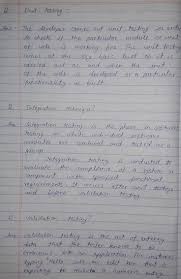 Unit Testing :-
Ans The developer carries out unit testing in order
to check if the particular module or unit
of code is working fine. The unit testing
comes at the very basic level as it is
carried out as and when the unit
of the code is developed or a particular
functionality is built.
Integration testing?
Ans Integration testing is the phase in software
testing in which individual software
modules are combined and tested as a
group.
Integration testing is conducted to
evaluate the compliance of a system or
component with specified functional
requirements. It occurs after unit testing
and before validation testing.
Validation testing?
Ans Validation testing is the act of entering
data that the tester knows to be
erroneous into an application. For instance,
typing "Hello" into an edit box that is
expecting to receive a numeric entry.